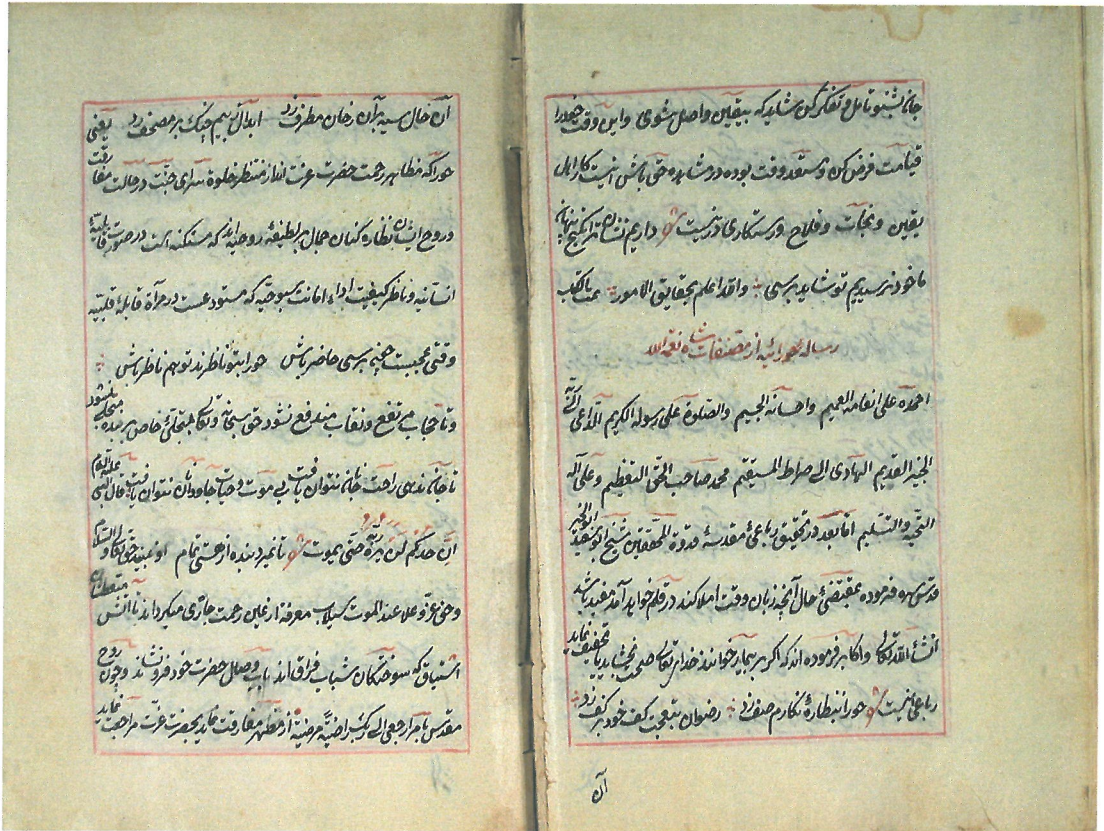 جانا بشنو تأمل و تفکر کن شاید که بیقین واصل شوی و این وقت خود را
قیامت فرض کن و مستعد وقت بوده در مشاهده حق باش اینست کار اهل
یقین و نجات و فلاح و رستکاری در نیست شعر دادیم نشان ترا ز کنج پنهانی
ما خود نرسیدیم تو شاید برسی والله اعلم بحقایق الامور تمت بالکتب
رساله حورائیه از مصنفات شاه نعمة الله
احمده علی انعامه العمیم و احسانه الجسیم والصلوة علی رسوله الکریم الداعی الی
الخیر القدیم الهادی الی صراط المستقیم محمد صاحب الخلق العظیم و علی آله
التحیة والتسلیم اما بعد در تحقیق رباعی مقدسه قدوة المحققین شیخ ابوسعید ابوالخیر
قدس سره فرموده بمقتضی حال آنچه زبان وقت املا کند در قلم خواهد آمد مفید باشد
انشاء الله تعالی و اکابر فرموده اند که اگر بر بیمار خوانند خدای تعالی صحت بخشاید یا تخفیف نماید
رباعی اینست شعر حورا بنظاره نگارم صف زد رضوان بتعجب کف خود بر کف زد
آن
آن خال سیه بر آن رخان مطرف زد ابدال ز بیم چنک بر مصحف زد یعنی
حورا که مظاهر رحمت حضرت عزت اند از منتظر خلوة سرای جنت در حالت مفارقت
و روح ایشان نظاره کنان جمال بر لطیفه روحیه اند که مستکنه است در صورت قابلیة
انسانیه و ناظر کیفیت اداء امانت سبوحیه که مستودعست در مرآة قابله قلبیه
وقتی عجبست هیبه برسی حاضر باش حورا بتو ناظرند تو هم ناظر باش
و تا حجاب مرتفع و نقاب مندفع نشود حق سبحانه و تعالی بتجلی خاص بر بنده متجلی نشود
تا جان ندهی راحت جان نتوان یافت بی موت حیات جاودان نتوان یافت قال النبی علیه السلام
ان احدکم لن یر ربه حتی یموت شعر تا نمیرد بنده از هستی تمام او نبیند حق تعالی والسلام
و حق عز و علا عند الموت سیلاب معرفة از عین رحمت جاری میکرداند تا آتش
اشتیاق که سوختکان شباب فراق اند بآب وصال حضرت خود فرونشاند و چون روح
مقدس بامر ارجعی الی ربک راضیة مرضیة از مظهر مفارقت نماید بحضرت عزت مراجعت نماید